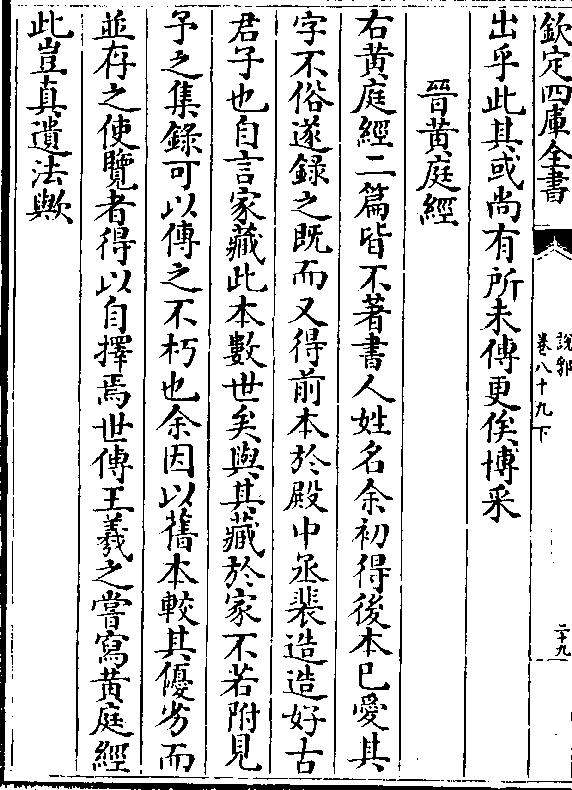 欽定四庫全書
說郛
卷八十九下
二十九
出乎此其或尚有所未傳更俟博采
晉黃庭經
右黃庭經二篇皆不著書人姓名余初得後本已愛其
字不俗遂録之既而又得前本於殿中丞裴造造好古
君子也自言家藏此本數世矣與其藏於家不若附見
予之集錄可以傳之不朽也余因以舊本較其優劣而
並存之使覽者得以自擇焉世傳王羲之嘗寫黃庭經
此豈真遺法歟